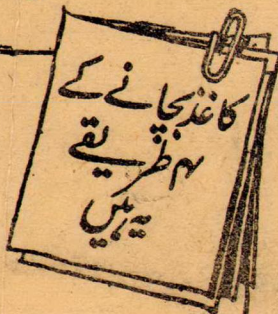 کاغذ بچانے کے
۴ طریقے
یہ ہیں